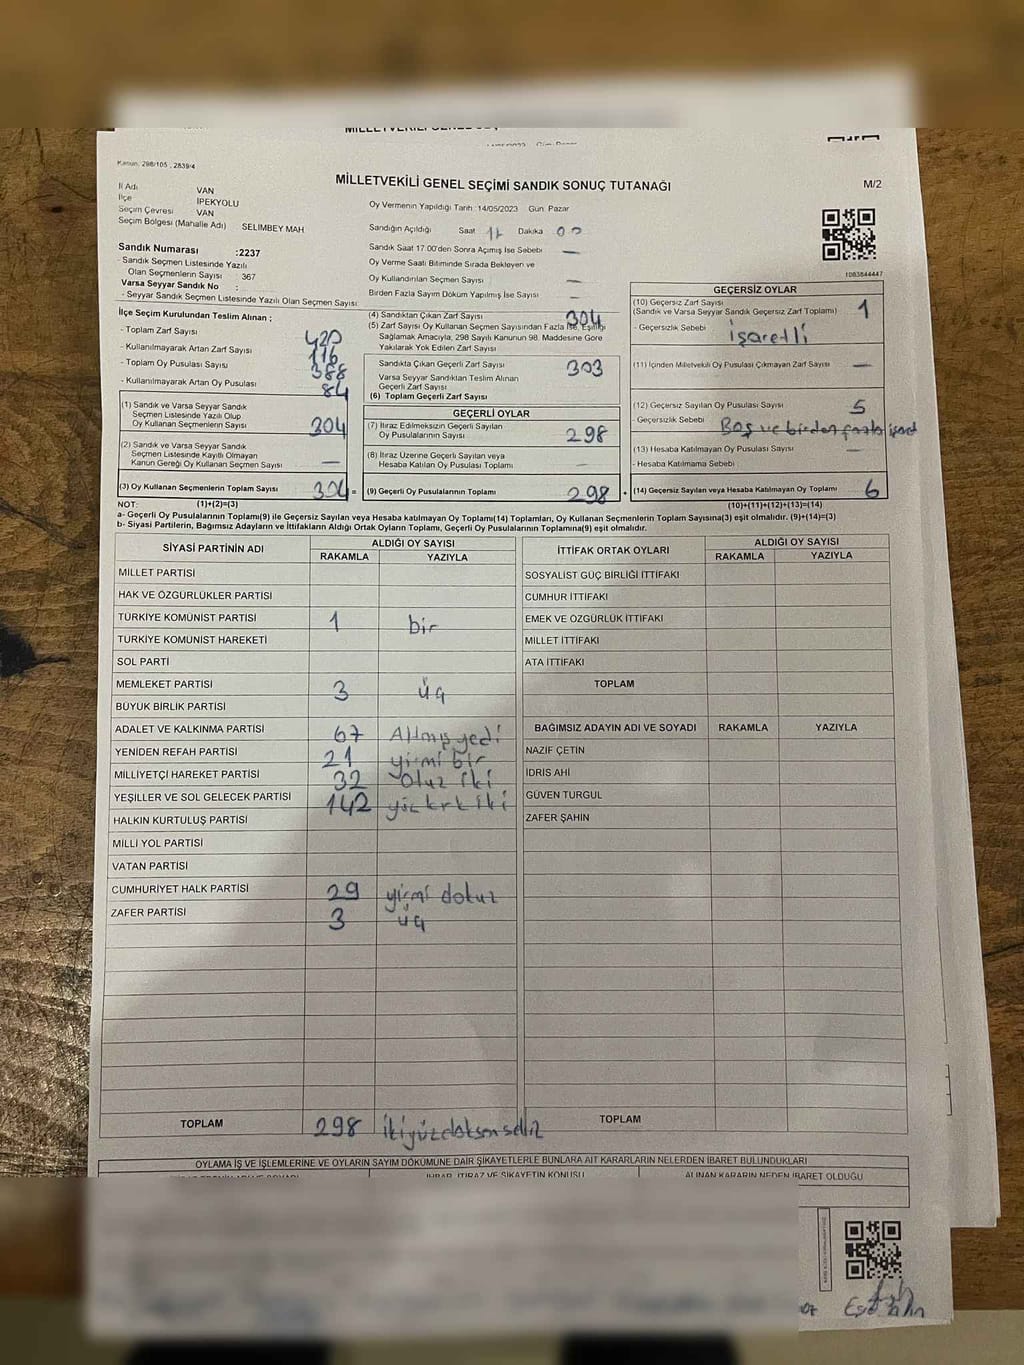 Kanun, 298/105 , 2839/4
MİLLETVEKİLİ GENEL SEÇİMİ SANDIK SONUÇ TUTANAĞI
M/2
İl Adı VAN
İlçe İPEKYOLU
Seçim Çevresi VAN
Seçim Bölgesi (Mahalle Adı) SELIMBEY MAH
Sandık Numarası :2237
- Sandık Seçmen Listesinde Yazılı
Olan Seçmenlerin Sayısı : 367
Varsa Seyyar Sandık No :
- Seyyar Sandık Seçmen Listesinde Yazılı Olan Seçmen Sayısı:
Oy Vermenin Yapıldığı Tarih: 14/05/2023 Gün: Pazar
Sandığın Açıldığı Saat Dakika 00
Sandık Saat 17.00'den Sonra Açımış İse Sebebi —
Oy Verme Saati Bitiminde Sırada Bekleyen ve
Oy Kullandırılan Seçmen Sayısı —
Birden Fazla Sayım Döküm Yapılmış İse Sayısı —
1083844447
İlçe Seçim Kurulundan Teslim Alınan ;
- Toplam Zarf Sayısı 420
- Kullanılmayarak Artan Zarf Sayısı 116
- Toplam Oy Pusulası Sayısı 388
- Kullanılmayarak Artan Oy Pusulası 84
(1) Sandık ve Varsa Seyyar Sandık
Seçmen Listesinde Yazılı Olup
Oy Kullanan Seçmenlerin Sayısı 304
(2) Sandık ve Varsa Seyyar Sandık
Seçmen Listesinde Kayıtlı Olmayan
Kanun Gereği Oy Kullanan Seçmen Sayısı —
(3) Oy Kullanan Seçmenlerin Toplam Sayısı 304 =
(4) Sandıktan Çıkan Zarf Sayısı 304
(5) Zarf Sayısı Oy Kullanan Seçmen Sayısından Fazla İse, Eşitliği
Sağlamak Amacıyla, 298 Sayılı Kanunun 98. Maddesine Göre
Yakılarak Yok Edilen Zarf Sayısı
Sandıkta Çıkan Geçerli Zarf Sayısı 303
Varsa Seyyar Sandıktan Teslim Alınan
Geçerli Zarf Sayısı
(6) Toplam Geçerli Zarf Sayısı
GEÇERLİ OYLAR
(7) İtiraz Edilmeksizin Geçerli Sayılan
Oy Pusulalarının Sayısı 298
(8) İtiraz Üzerine Geçerli Sayılan veya
Hesaba Katılan Oy Pusulası Toplamı —
(9) Geçerli Oy Pusulalarının Toplamı 298
GEÇERSİZ OYLAR
(10) Geçersiz Zarf Sayısı
(Sandık ve Varsa Seyyar Sandık Geçersiz Zarf Toplamı) 1
- Geçersizlik Sebebi İşaretli
(11) İçinden Milletvekili Oy Pusulası Çıkmayan Zarf Sayısı —
(12) Geçersiz Sayılan Oy Pusulası Sayısı 5
- Geçersizlik Sebebi Boş ve birden fazla
(13) Hesaba Katılmayan Oy Pusulası Sayısı —
- Hesaba Katılmama Sebebi
(14) Geçersiz Sayılan veya Hesaba Katılmayan Oy Toplamı 6
NOT: (1)+(2)=(3) (10)+(11)+(12)+(13)=(14)
a- Geçerli Oy Pusulalarının Toplamı(9) ile Geçersiz Sayılan veya Hesaba katılmayan Oy Toplamı(14) Toplamları, Oy Kullanan Seçmenlerin Toplam Sayısına(3) eşit olmalıdır. (9)+(14)=(3)
b- Siyasi Partilerin, Bağımsız Adayların ve İttifakların Aldığı Ortak Oyların Toplamı, Geçerli Oy Pusulalarının Toplamına(9) eşit olmalıdır.
SİYASİ PARTİNİN ADI ALDIĞI OY SAYISI
RAKAMLA YAZIYLA
MİLLET PARTİSİ
HAK VE ÖZGÜRLÜKLER PARTİSİ
TÜRKİYE KOMÜNİST PARTİSİ 1 bir
TÜRKİYE KOMÜNİST HAREKETİ
SOL PARTİ
MEMLEKET PARTİSİ 3 üç
BÜYÜK BİRLİK PARTİSİ
ADALET VE KALKINMA PARTİSİ 67 Altmış yedi
YENİDEN REFAH PARTİSİ 21 yirmi bir
MİLLİYETÇİ HAREKET PARTİSİ 32 otuz iki
YEŞİLLER VE SOL GELECEK PARTİSİ 142 yüz kırk iki
HALKIN KURTULUŞ PARTİSİ
MİLLİ YOL PARTİSİ
VATAN PARTİSİ
CUMHURİYET HALK PARTİSİ 29 yirmi dokuz
ZAFER PARTİSİ 3 üç
TOPLAM 298 ikiyüzdoksansekiz
İTTİFAK ORTAK OYLARI ALDIĞI OY SAYISI
RAKAMLA YAZIYLA
SOSYALİST GÜÇ BİRLİĞİ İTTİFAKI
CUMHUR İTTİFAKI
EMEK VE ÖZGÜRLÜK İTTİFAKI
MİLLET İTTİFAKI
ATA İTTİFAKI
TOPLAM
BAĞIMSIZ ADAYIN ADI VE SOYADI RAKAMLA YAZIYLA
NAZİF ÇETİN
İDRİS AHİ
GÜVEN TURGUL
ZAFER ŞAHİN
TOPLAM
OYLAMA İŞ VE İŞLEMLERİNE VE OYLARIN SAYIM DÖKÜMÜNE DAİR ŞİKAYETLERLE BUNLARA AİT KARARLARIN NELERDEN İBARET BULUNDUKLARI
İHBAR, İTİRAZ VE ŞİKAYETİN KONUSU ALINAN KARARIN NEDEN İBARET OLDUĞU